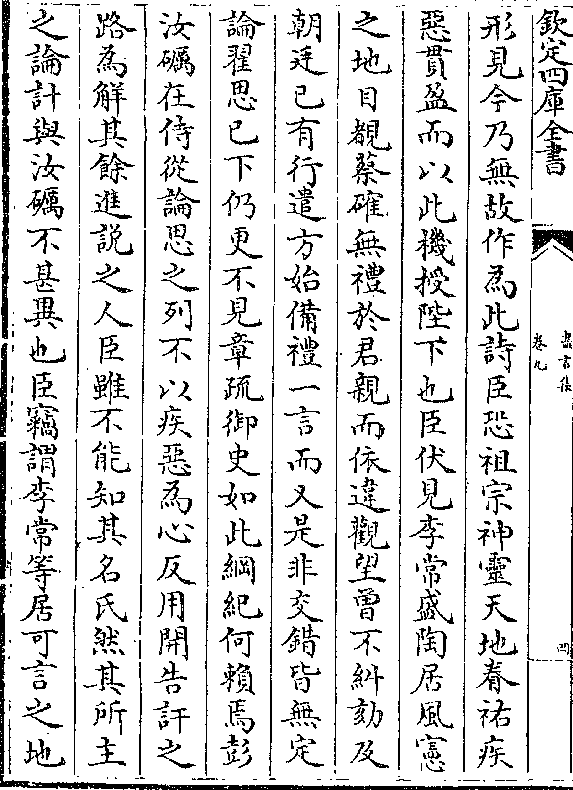 欽定四庫全書
盡言集
卷九
四
形見今乃無故作為此詩臣恐祖宗神靈天地眷祐疾
惡貫盈而以此機授陛下也臣伏見李常盛陶居風憲
之地目覩蔡確無禮於君親而依違觀望曾不糾劾及
朝廷已有行遣方始備禮一言而又是非交錯皆無定
論翟思已下仍更不見章疏御史如此綱紀何賴焉彭
汝礪在侍從論思之列不以疾惡為心反用開告訐之
路為解其餘進説之人臣雖不能知其名氏然其所主
之論計與汝礪不甚異也臣竊謂李常等居可言之地